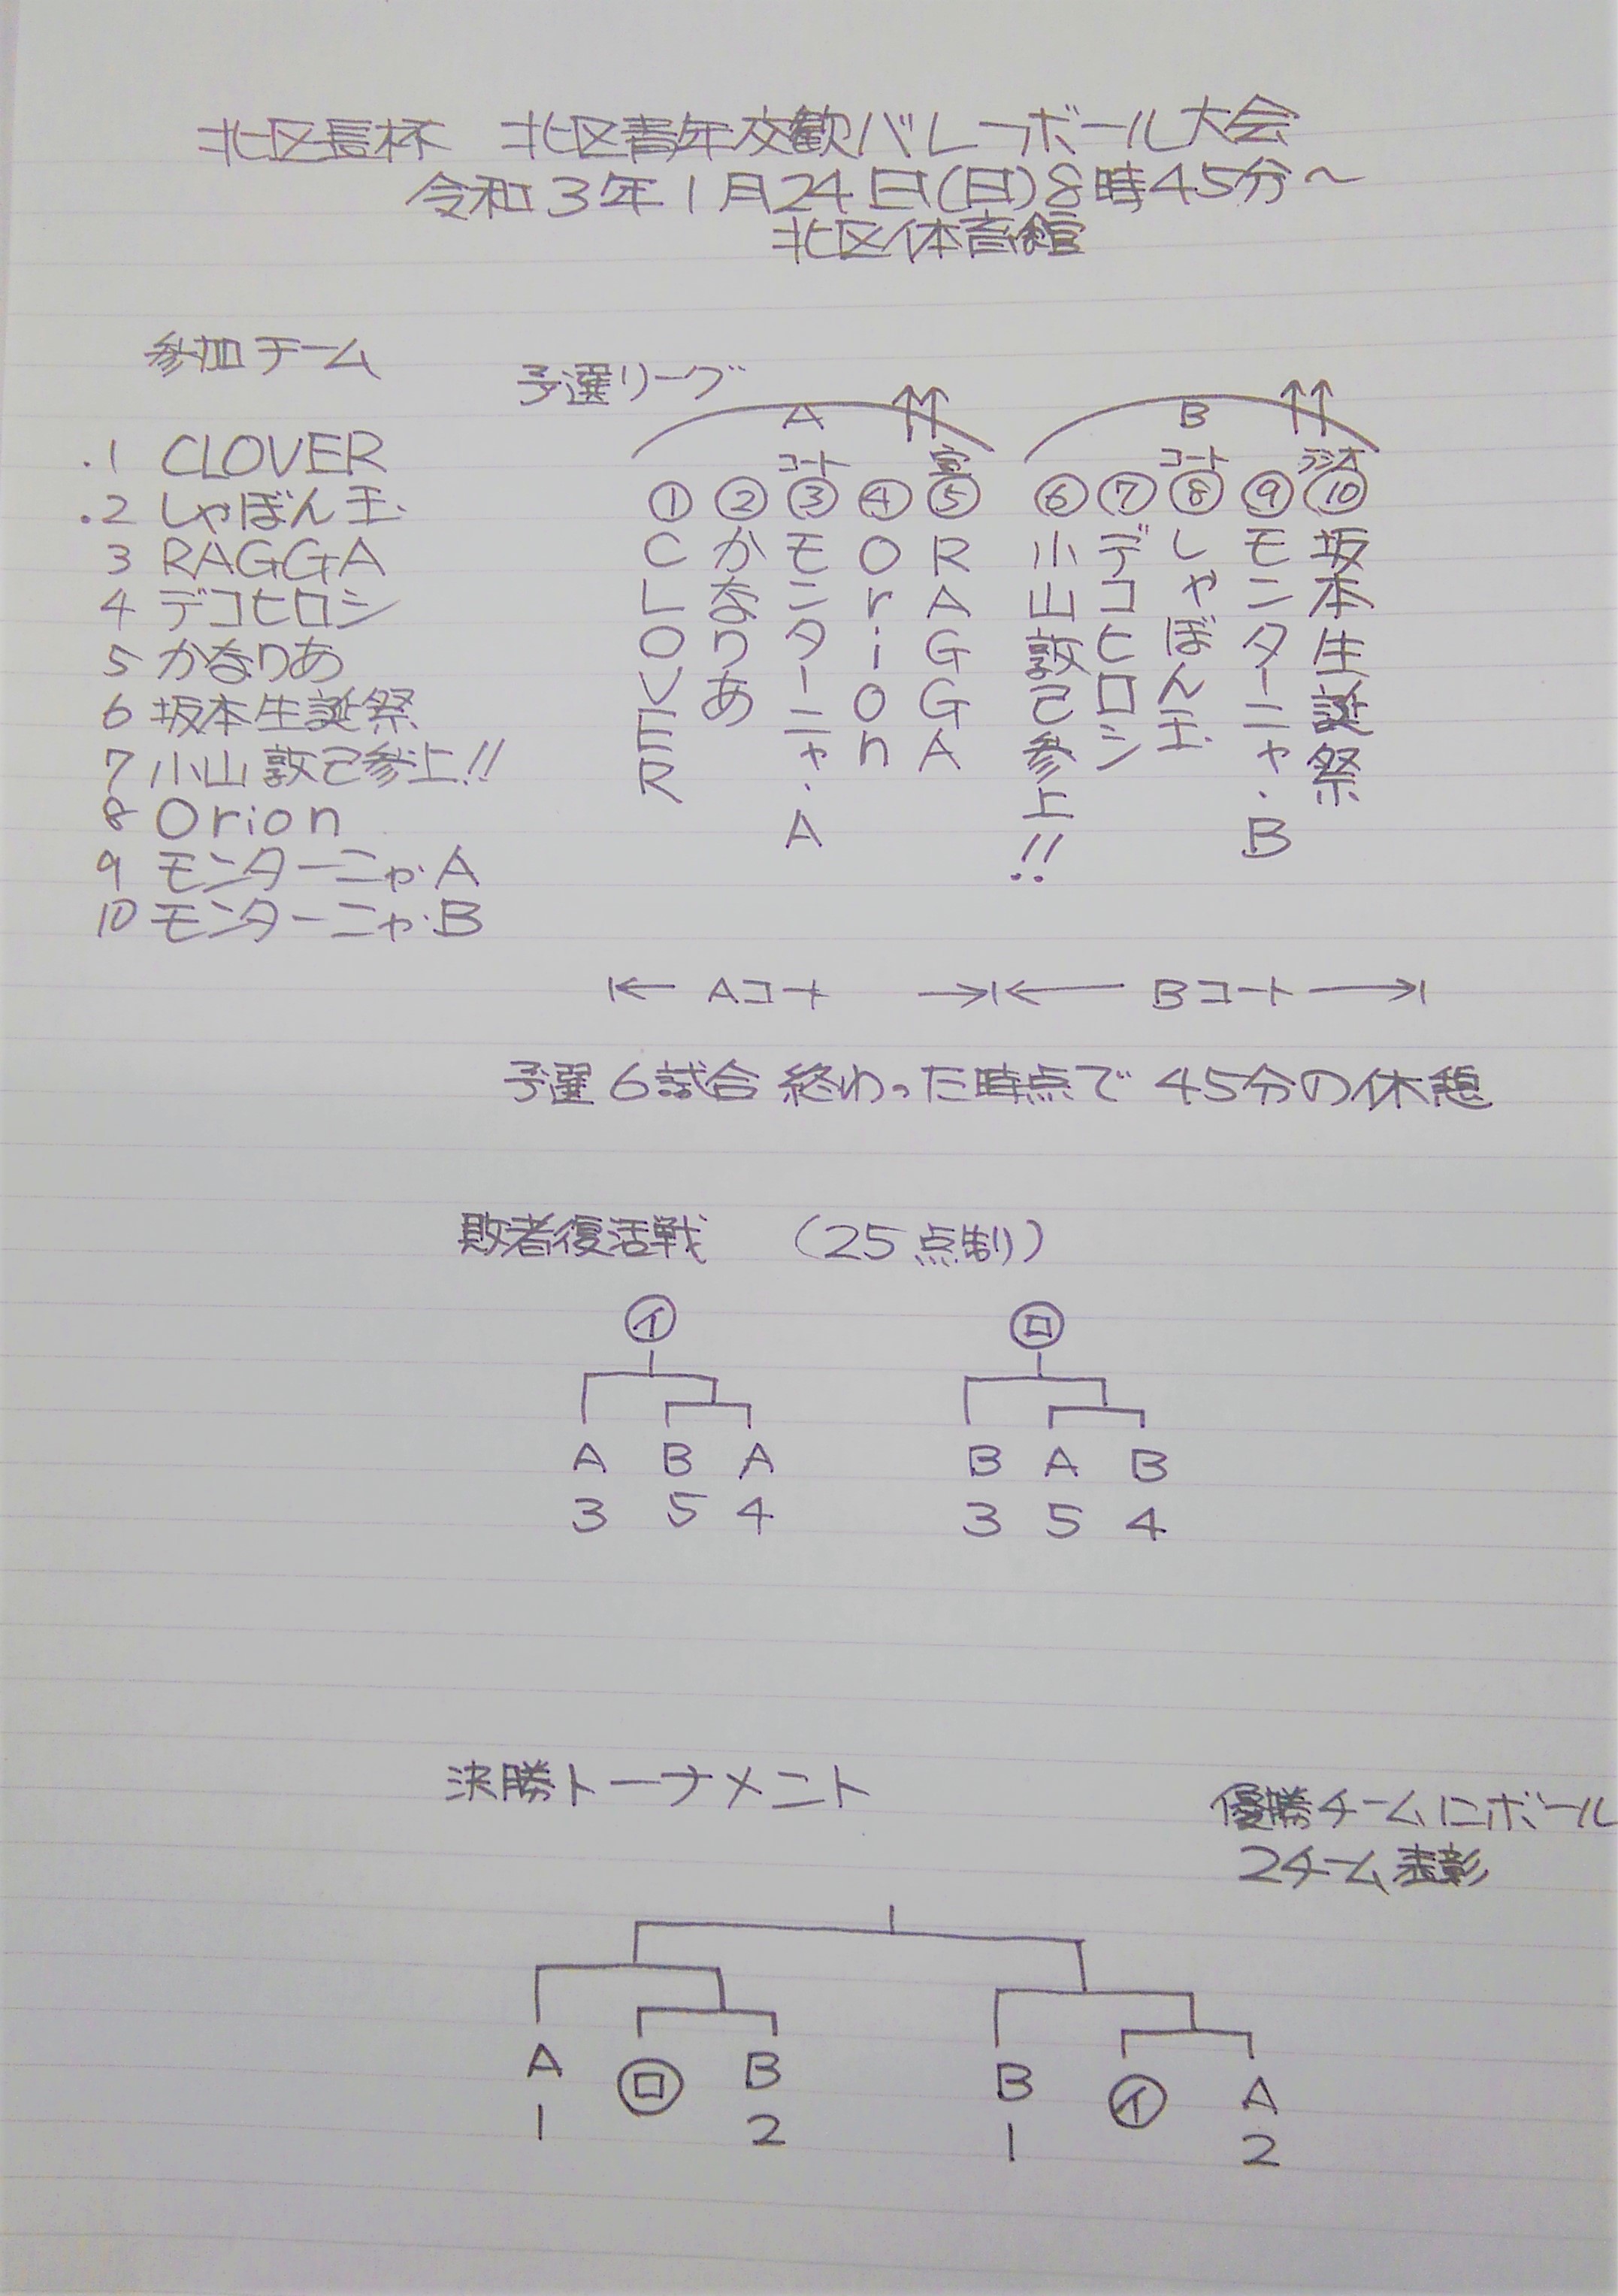 北区長杯 北区青年交歓バレーボール大会
令和3年1月24日(日)8時45分〜
北区体育館
参加チーム
.1 CLOVER
.2 しゃぼん玉
3 RAGGA
4 デコヒロシ
5 かなりあ
6 坂本生誕祭
7 小山敦己参上!!
8 Orion
9 モンターニャ・A
10 モンターニャ・B
予選リーグ
A
コート
①CLOVER
②かなりあ
③モンターニャ・A
④Orion
⑤RAGGA
B
コート
⑥小山敦己参上!!
⑦デコヒロシ
⑧しゃぼん玉
⑨モンターニャ・B
⑩坂本生誕祭
Aコート Bコート
予選6試合終わった時点で 45分の休憩
敗者復活戦 (25点制)
イ ロ
A B A B A B
3 5 4 3 5 4
決勝トーナメント
優勝チームにボール
2チーム表彰
A ロ B B イ A
1 2 1 2